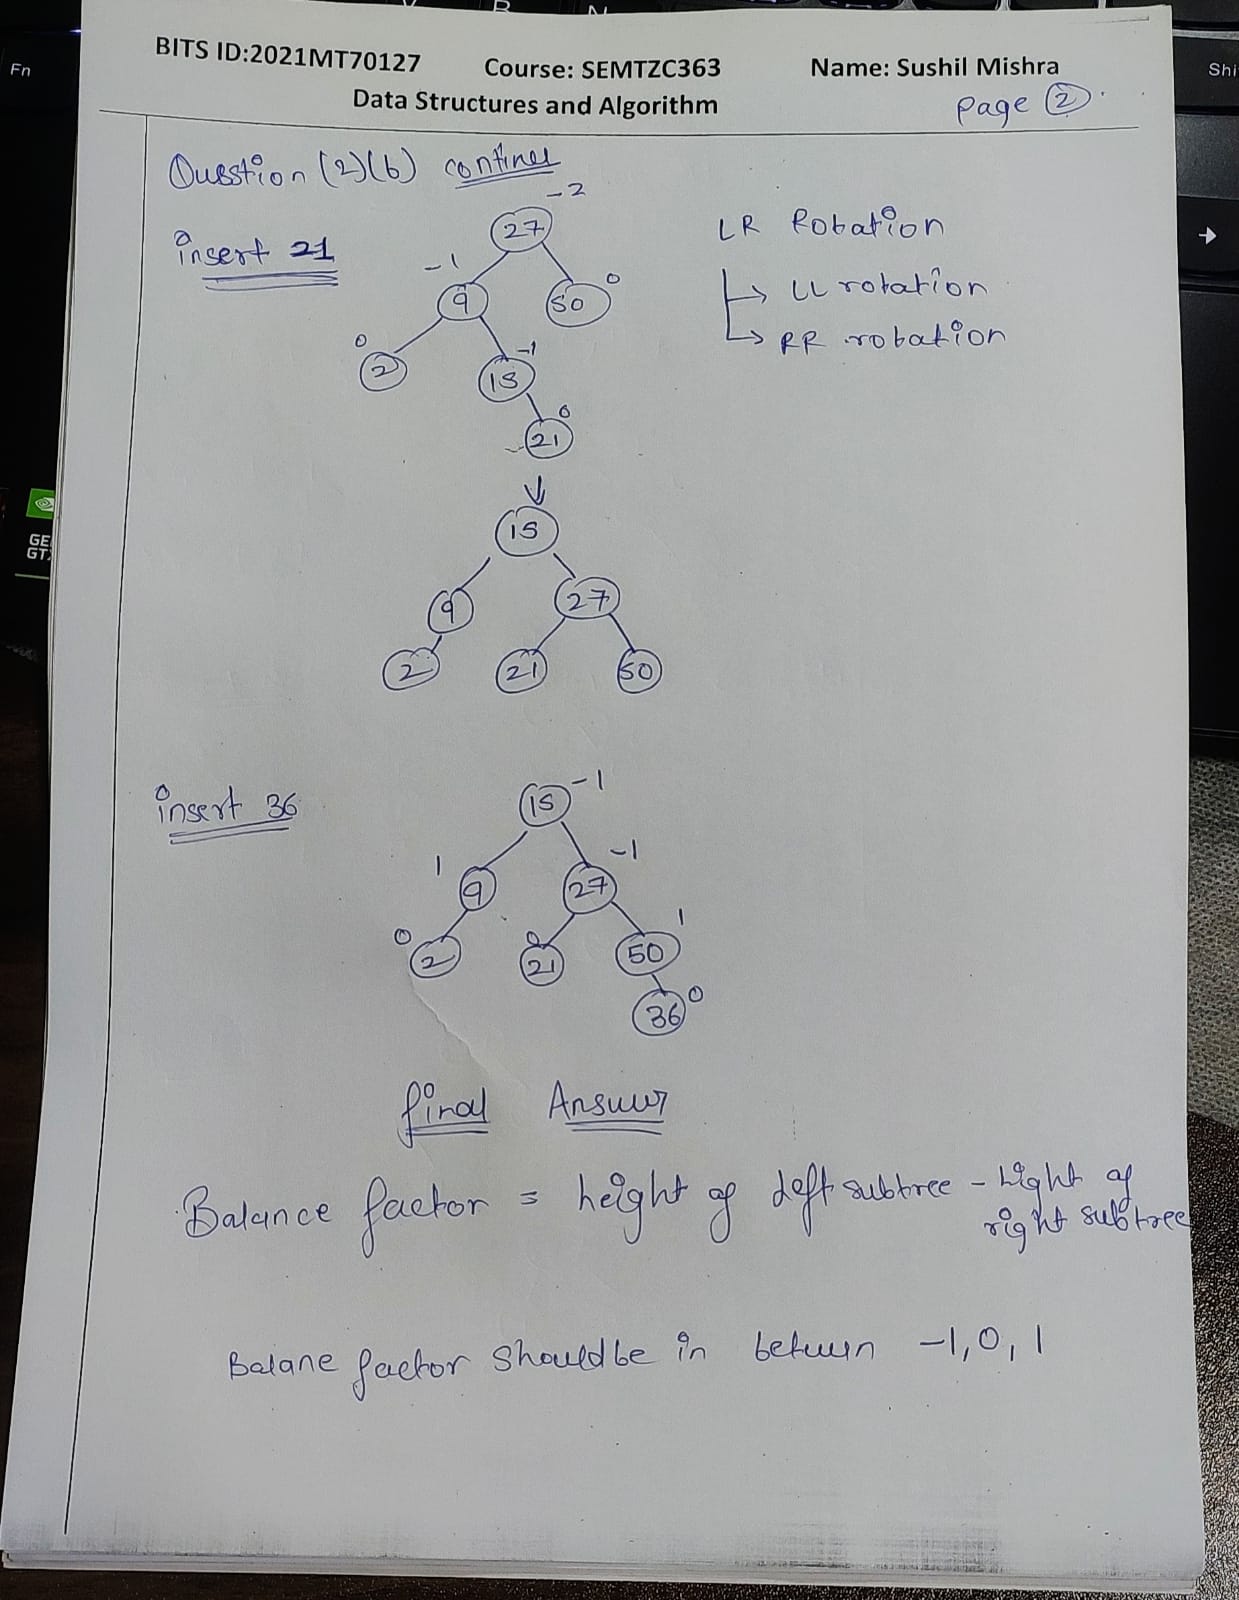 Fn
Shi
BITS ID:2021MT70127 Course: SEMTZC363 Name: Sushil Mishra
Data Structures and Algorithm
Page 2
Ousstion (2)(b) contines
insert 21
-2
27
-1
9
50
0
0
2
-1
15
0
21
LR Robation
LL rotation
RR robation
15
9
27
2
21
50
GE
GT
insert 36
15
-1
1
9
-1
27
0
2
0
21
1
50
36
0
final Answer
Balance factor = height of left subtree - hight of
right subtree
Balane factor should be in between -1, 0, 1